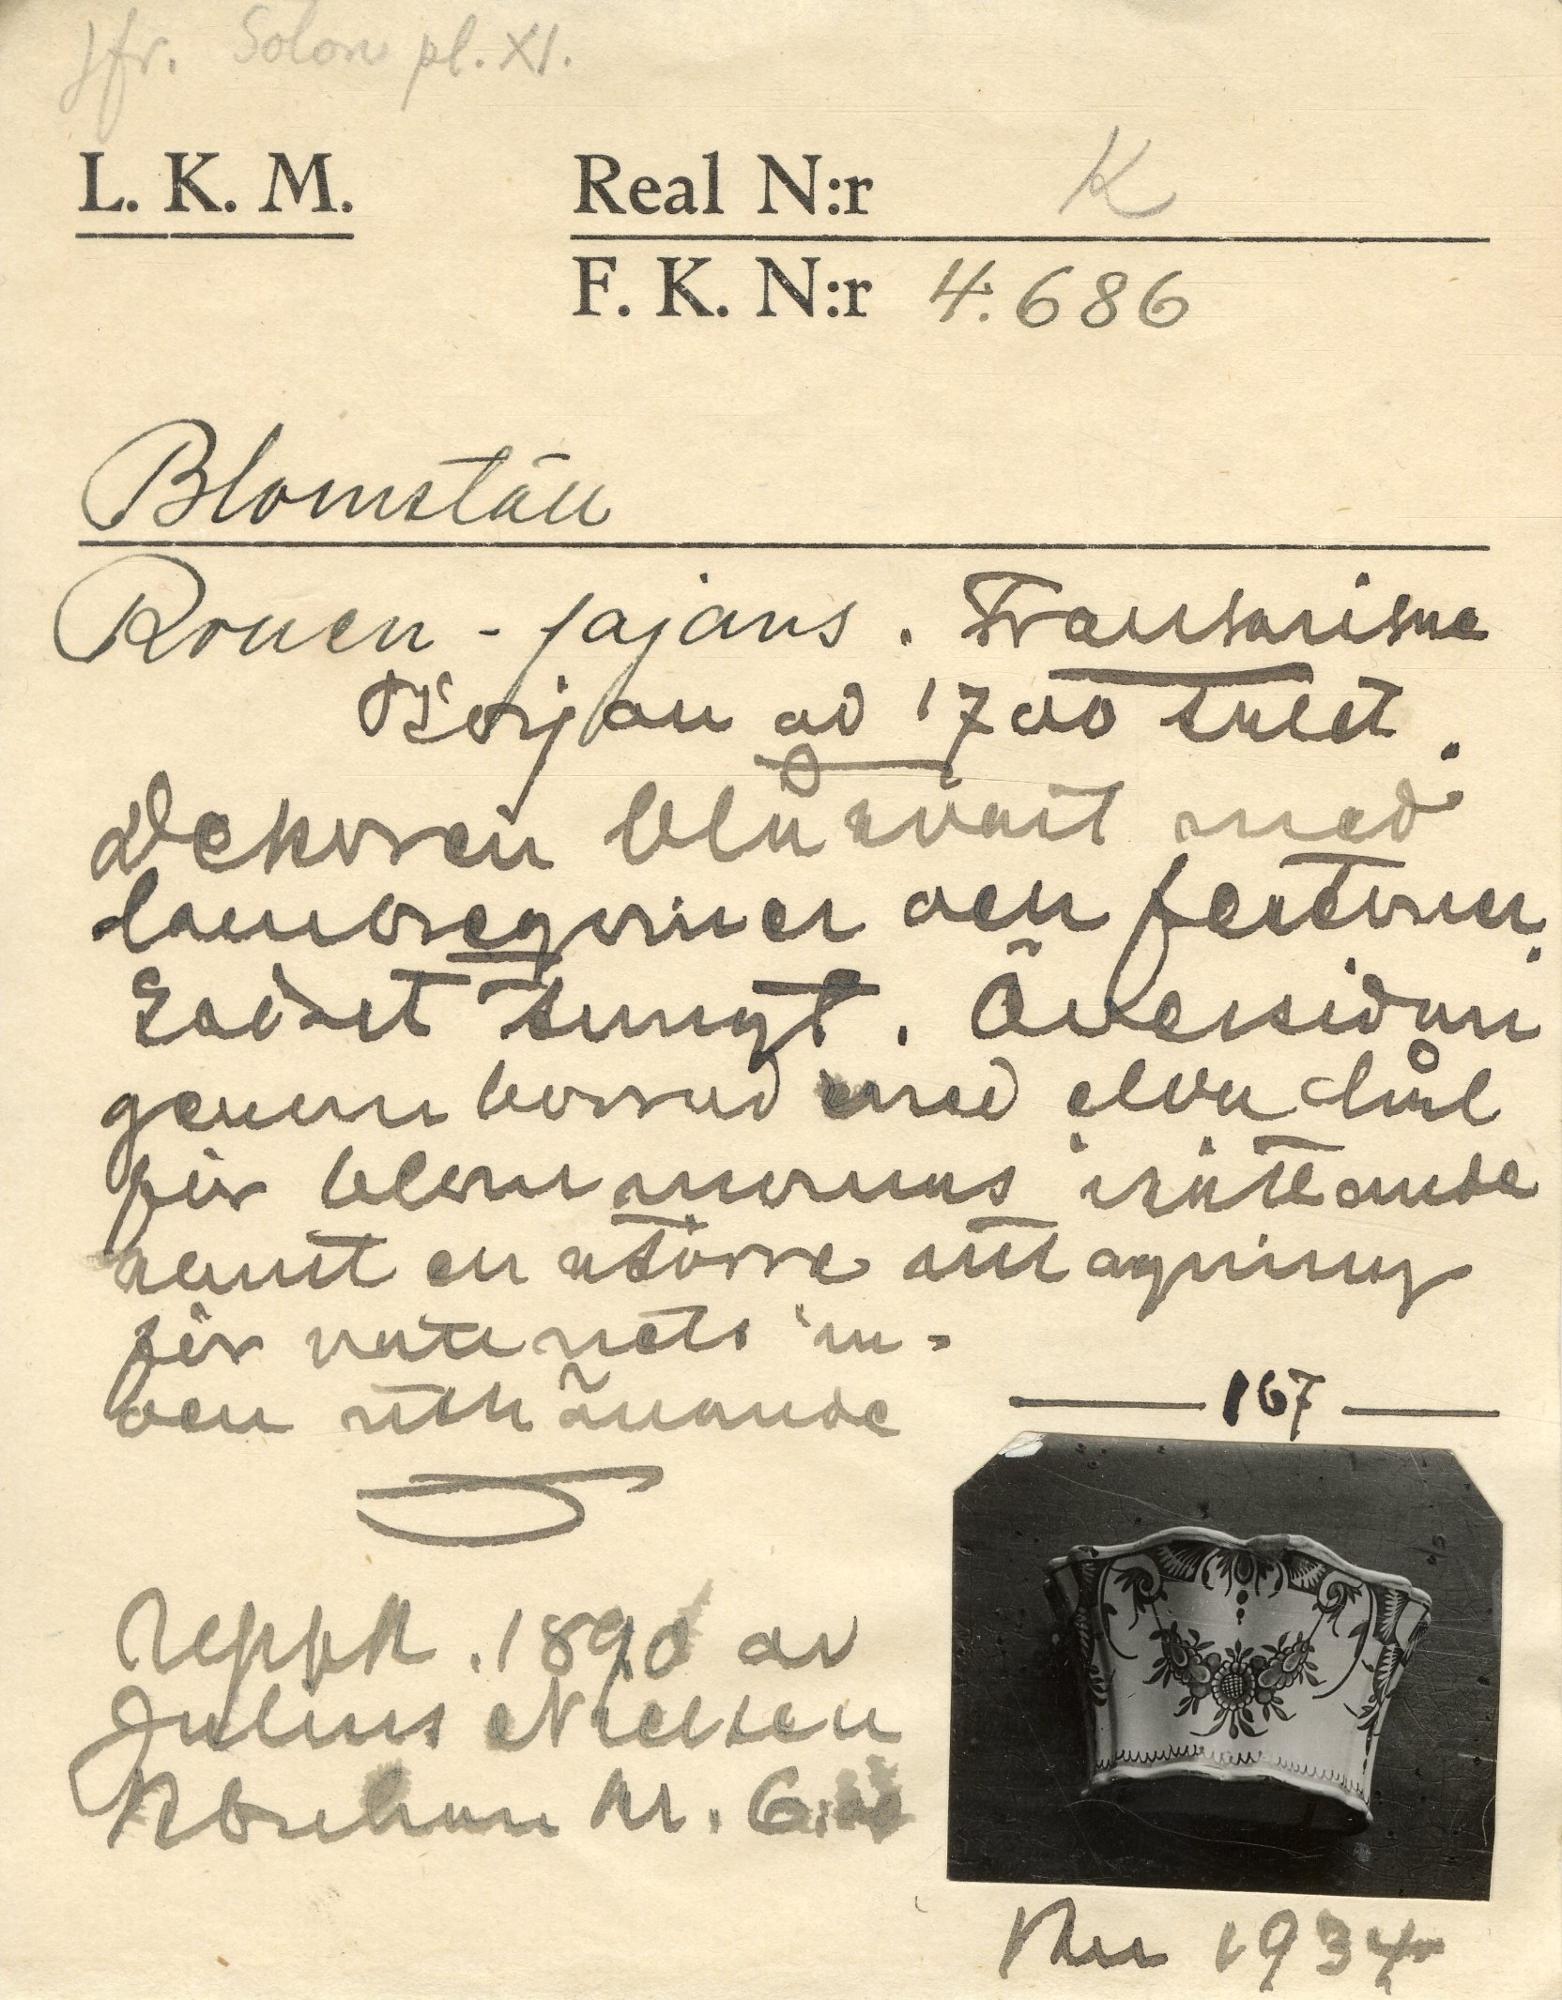 jfr. Solon pl. XI.
L. K. M. Real N:r K
F. K. N:r 4.686
Blomställ
Rouen-fajans. Fransariska
Början av 1700 talet.
Dekoren blåsvart med
lambreqviner och festoner.
Godset tungt. Översidan
genomborrad med elva hål
för blommornas isättande
samt en större urtagning
för vattnets in-
och uthällande
167
Uppk. 1890 av
Julius Nielsen
Kbenhavn kr. 6:
Nov 1934